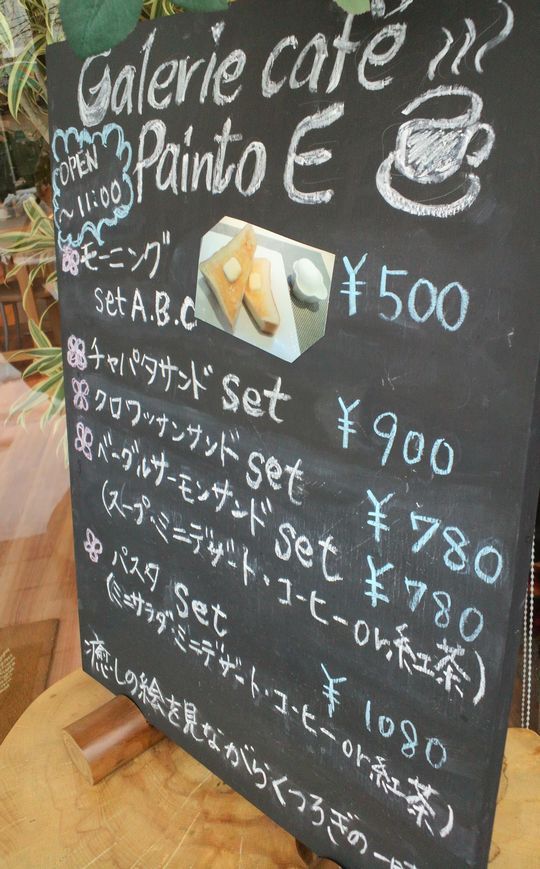 Galerie café
Painto E
OPEN
~11:00
モーニング
set A.B.C
¥500
チャパタサンド set
¥900
クロワッサンサンド set
¥780
ベーグルサーモンサンド set
¥780
(スープ・ミニデザート・コーヒーor紅茶)
パスタ set
¥1080
(ミニサラダ・ミニデザート・コーヒーor紅茶)
癒しの絵を見ながらくつろぎの一